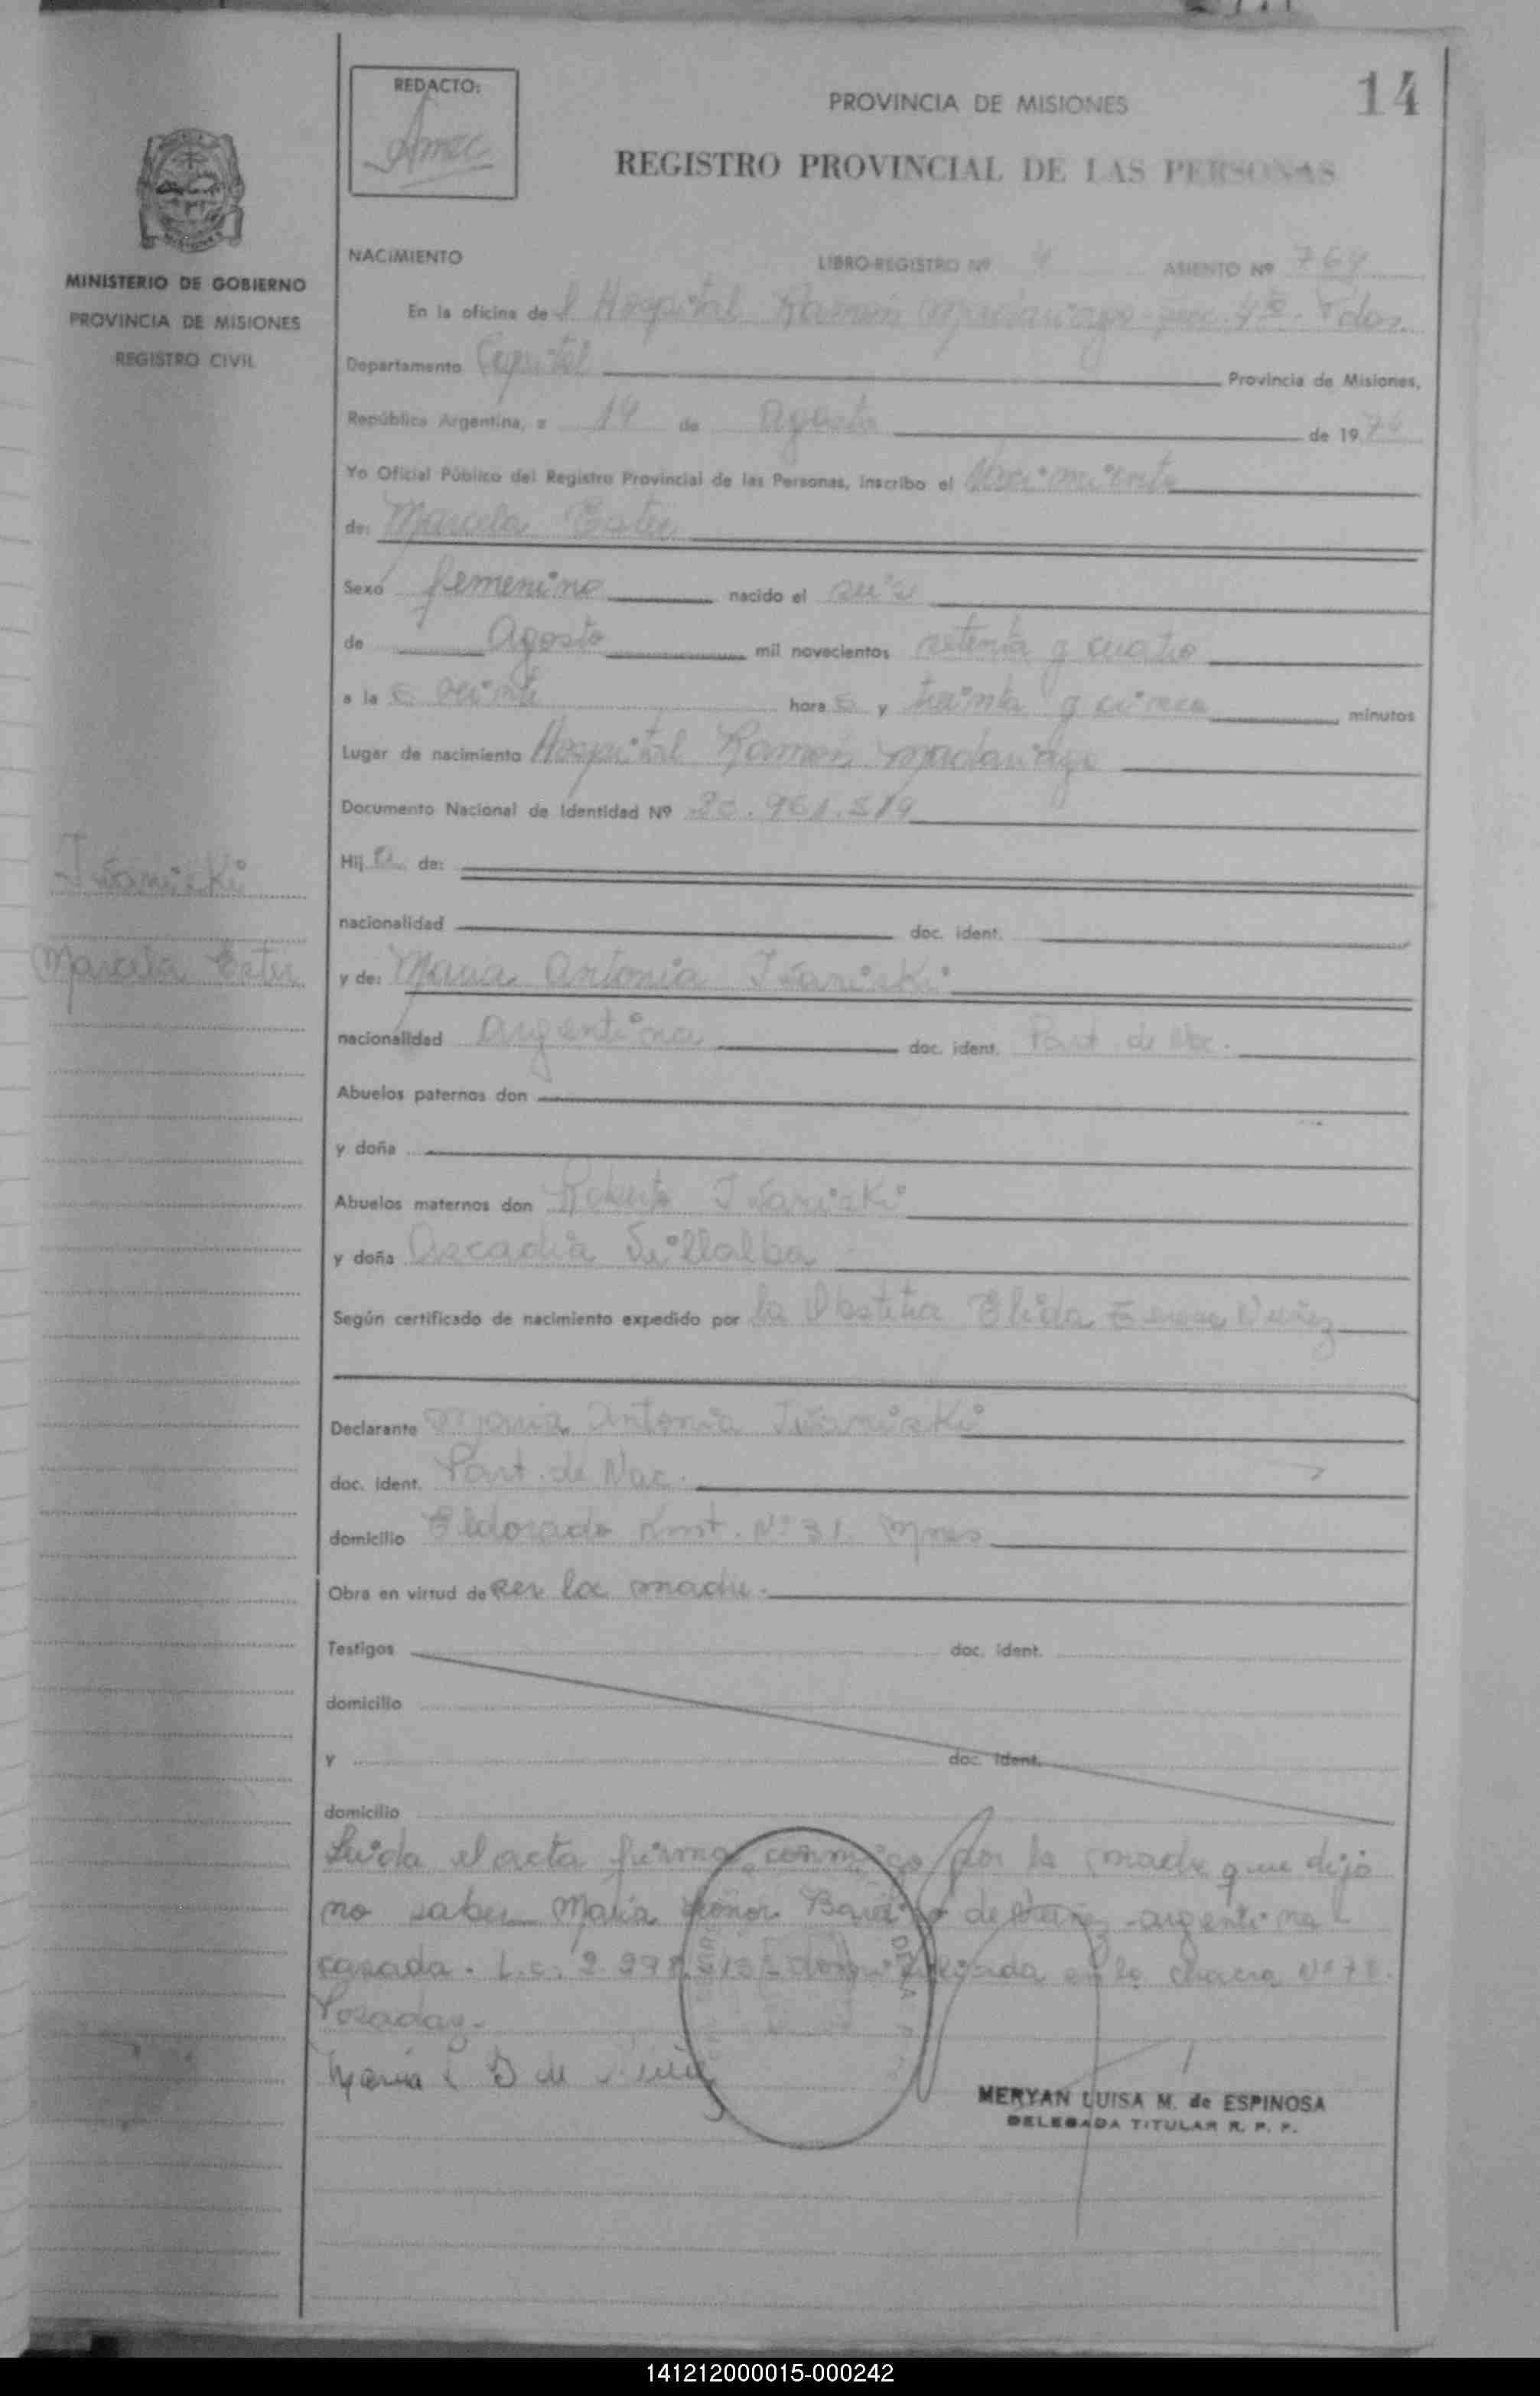 14
REDACTO:
PROVINCIA DE MISIONES
REGISTRO PROVINCIAL DE LAS PERSONAS
MINISTERIO DE GOBIERNO
PROVINCIA DE MISIONES
REGISTRO CIVIL
NACIMIENTO LIBRO-REGISTRO Nº 4 ASIENTO Nº 764
En la oficina de l Hospital Ramón Madariaga Pdas.
Departamento Capital Provincia de Misiones,
República Argentina, a 14 de Agosto de 1974
Yo Oficial Público del Registro Provincial de las Personas, inscribo el Nacimiento
de: Marcela Ester
Sexo femenino nacido el seis
de Agosto mil novecientos setenta y cuatro
a la s veinte hora s y treinta y cinco minutos
Lugar de nacimiento Hospital Ramón Madariaga
Documento Nacional de Identidad Nº
Hij a de:
Iwaniski
nacionalidad doc. ident.
Marcela Ester
y de: Maria Antonia Iwaniski
nacionalidad argentina doc. ident. Part. de Nac.
Abuelos paternos don
y doña
Abuelos maternos don Roberto Iwaniski
y doña Arcadia Villalba
Según certificado de nacimiento expedido por la Obstetra Elida Nuñez
Declarante Maria Antonia Iwaniski
doc. ident. Part. de Nac.
domicilio Eldorado Kmt. Nº 31. Mnes
Obra en virtud de ser la madre.
Testigos doc. ident.
domicilio
y doc. ident.
domicilio
Leida el acta firma conmigo por la madre que dijo
no saber Maria Leonor de Nuñez argentina
casada. L.c. domiciliada en la chacra Nº 78.
Posadas.
Maria L B de Nuñez
MERYAN LUISA M. de ESPINOSA
DELEGADA TITULAR R. P. P.
141212000015-000242